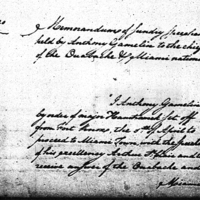 Memorandum of sundry speeches
held by Anthony Gamelin to the chiefs
of the Ouabache & Miami nations
I Anthony Gamelin
by order of major Hamtramck set off
from Fort Knox, the 5th April to
proceed to Miami Town, with the speeches
of his excellency Arthur St Clair and to
receive answer of the Ouabache and
Miami